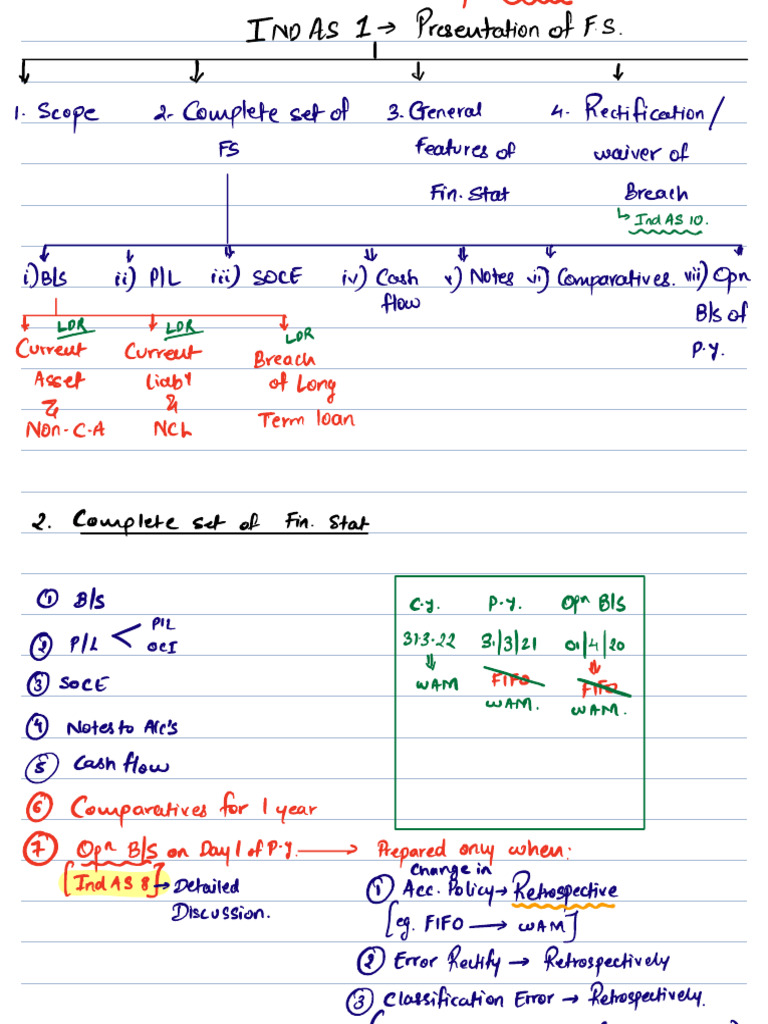 IND AS 1 → Presentation of F.S.
1. Scope
2- Complete set of
FS
3. General
features of
Fin. Stat
4. Rectification/
waiver of
Breach
↳ Ind AS 10.
i) B/S
ii) P/L
iii) SOCE
iv) Cash
flow
v) Notes
vi) Comparatives.
vii) Opn
B/s of
P.Y.
LDR
Current
Asset
&
Non-C.A
LDR
Current
liaby
&
NCL
LDR
Breach
of Long
Term loan
2. Complete set of Fin. Stat
① B/S
② P/L < P/L
OCI
③ SOCE
④ Notes to A/c's
⑤ Cash flow
⑥ Comparatives for 1 year
⑦ Opn B/s on Day 1 of P.Y. → Prepared only when:
[Ind AS 8] → Detailed
Discussion.
C.Y. P.Y. Opn B/S
31.3.22 31/3/21 01/4/20
WAM FIFO FIFO
WAM. WAM.
change in
① Acc. Policy → Retrospective
[eg. FIFO → WAM]
② Error Rectify → Retrospectively
③ Classification Error → Retrospectively.